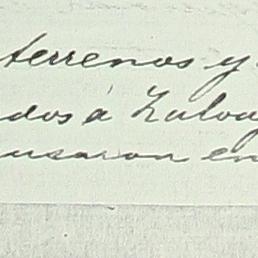 terrenos y
dos á Zuloa
usaron en